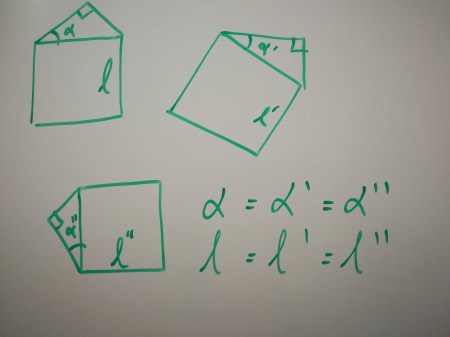 α
l
α'
l'
α''
l''
α = α' = α''
l = l' = l''